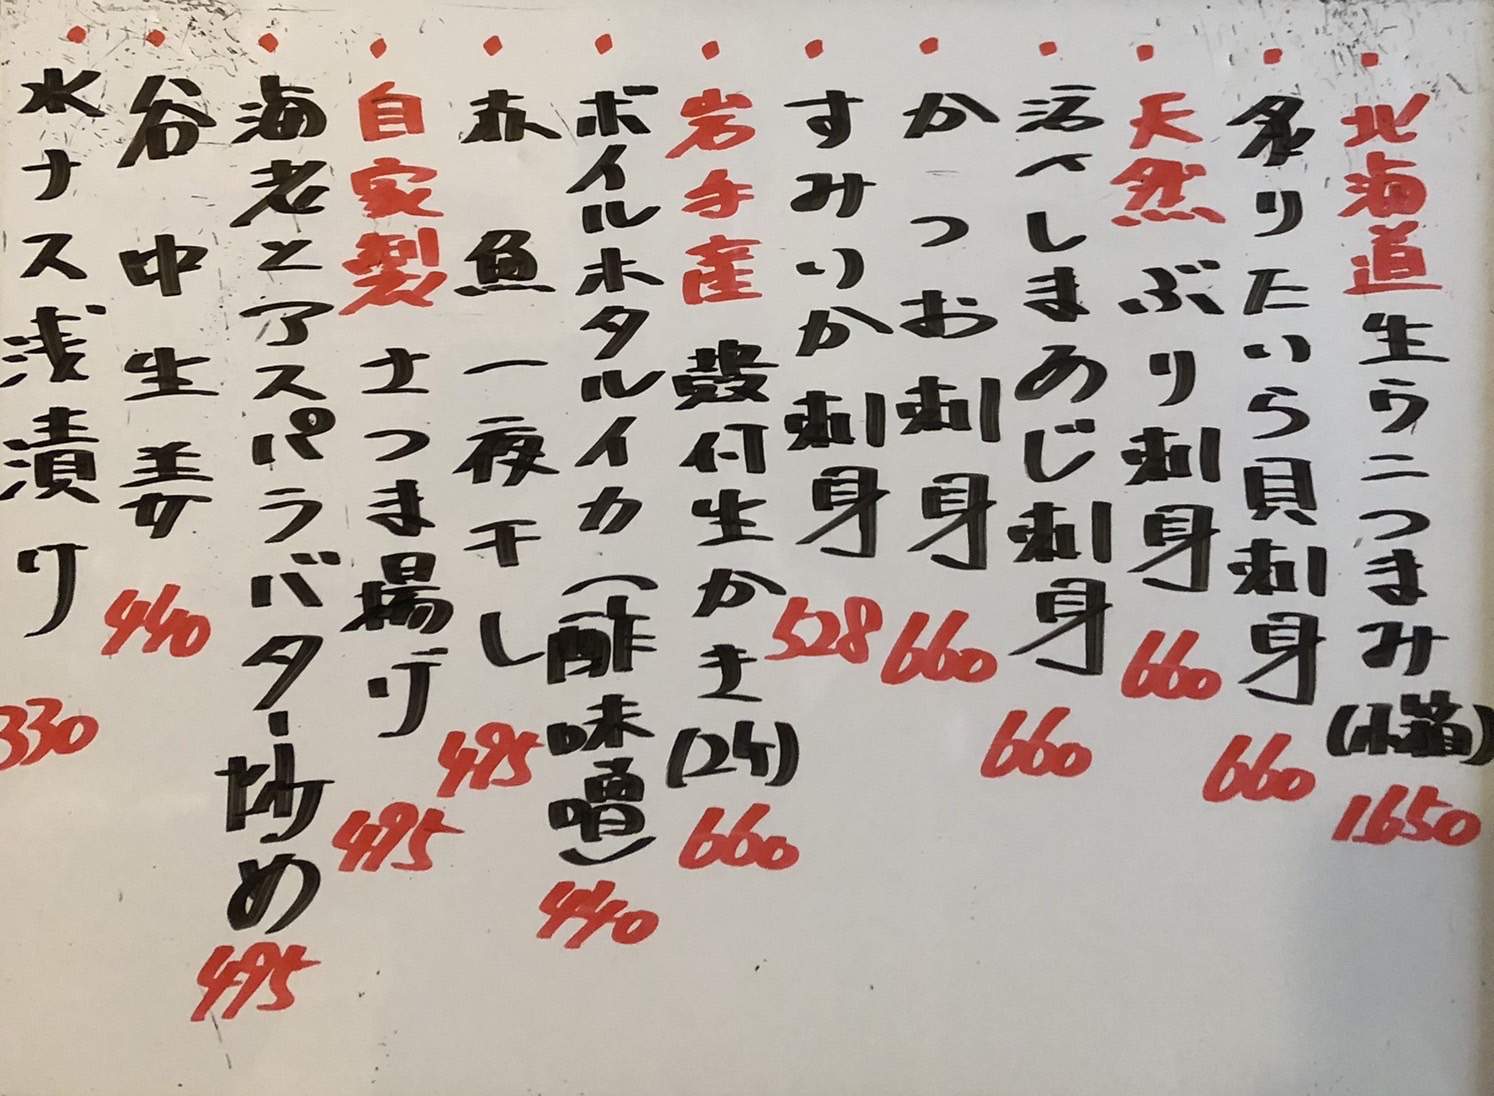 北海道生ウニつまみ(小箱)1650
炙りたいら貝刺身660
天然ぶり刺身660
活〆しまあじ刺身660
かつお刺身660
すみいか刺身528
岩手産殻付生かき(2ケ)660
ボイルホタルイカ(酢味噌)440
赤魚一夜干し495
自家製さつま揚げ495
海老とアスパラバター炒め495
谷中生姜440
水ナス浅漬り330